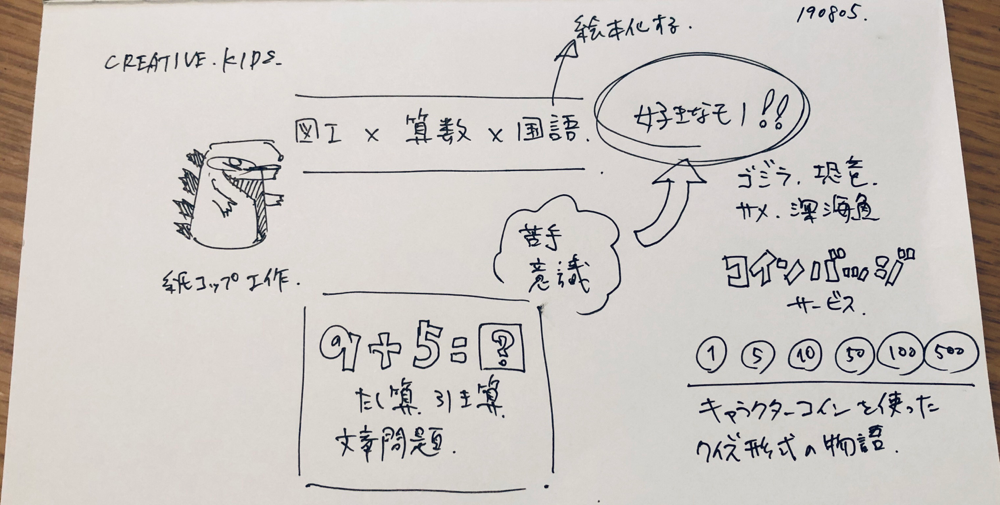 190805.
CREATIVE.KIDS_
絵本化する.
図工 × 算数 × 国語.
好きなモノ!!
ゴジラ、恐竜、
サメ、深海魚
紙コップ工作.
苦手
意識
コインバッジ
サービス.
9+5=?
たし算、引き算
文章問題.
1 5 10 50 100 500
キャラクターコインを使った
クイズ形式の物語.